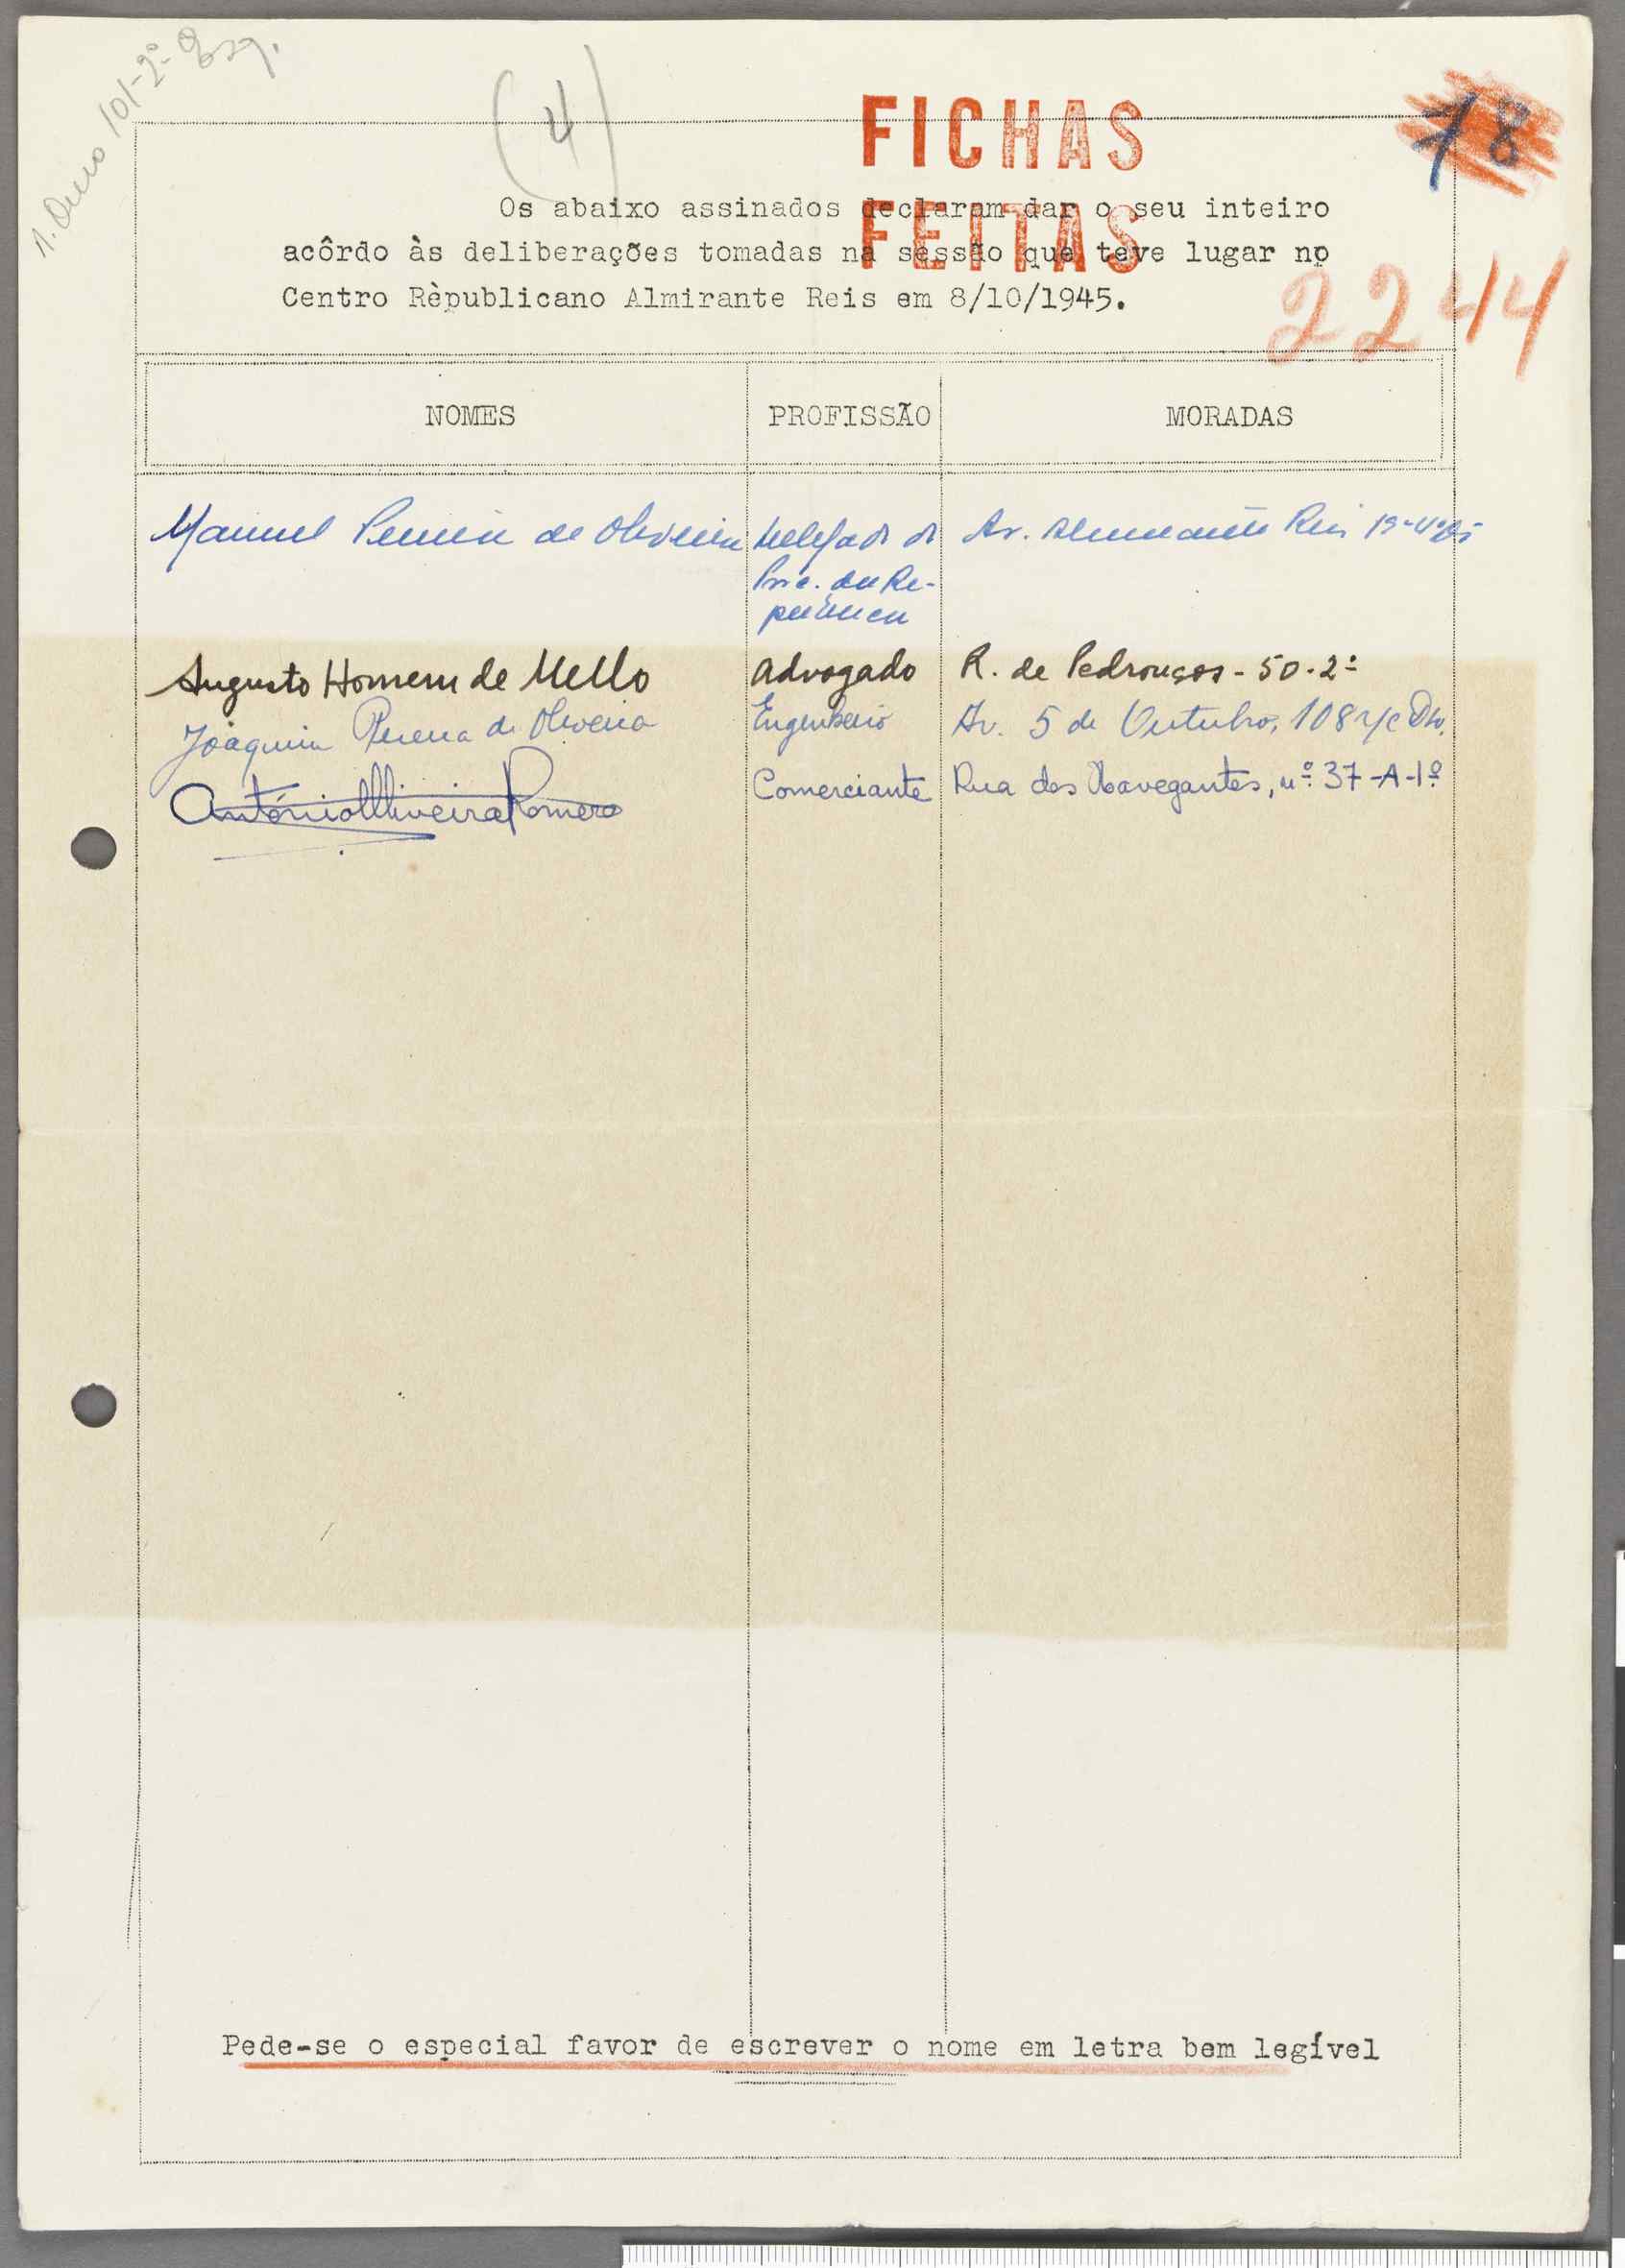 R. Ouro 101-2º Esq.
(4)
FICHAS
FEITAS
18
Os abaixo assinados declaram dar o seu inteiro
acôrdo às deliberações tomadas na sessão que teve lugar no
Centro Rèpublicano Almirante Reis em 8/10/1945.
2244
NOMES PROFISSÃO MORADAS
Manuel Pereira de Oliveira Delegado do Av. Almirante Reis
Proc. da Re-
pública
Augusto Homem de Mello Advogado R. de Pedrouços - 50-2º
Joaquim Pereira de Oliveira Engenheiro Av. 5 de Outubro, 108 r/c Dto.
António Oliveira Romero Comerciante Rua das Navegantes, nº 37-A-1º
Pede-se o especial favor de escrever o nome em letra bem legível